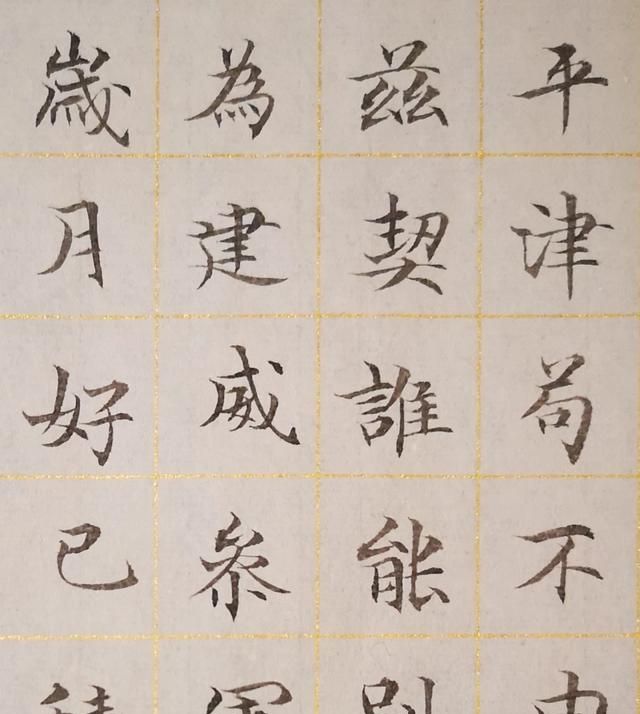 平津苟不
茲契誰能
為建威參
歲月好已